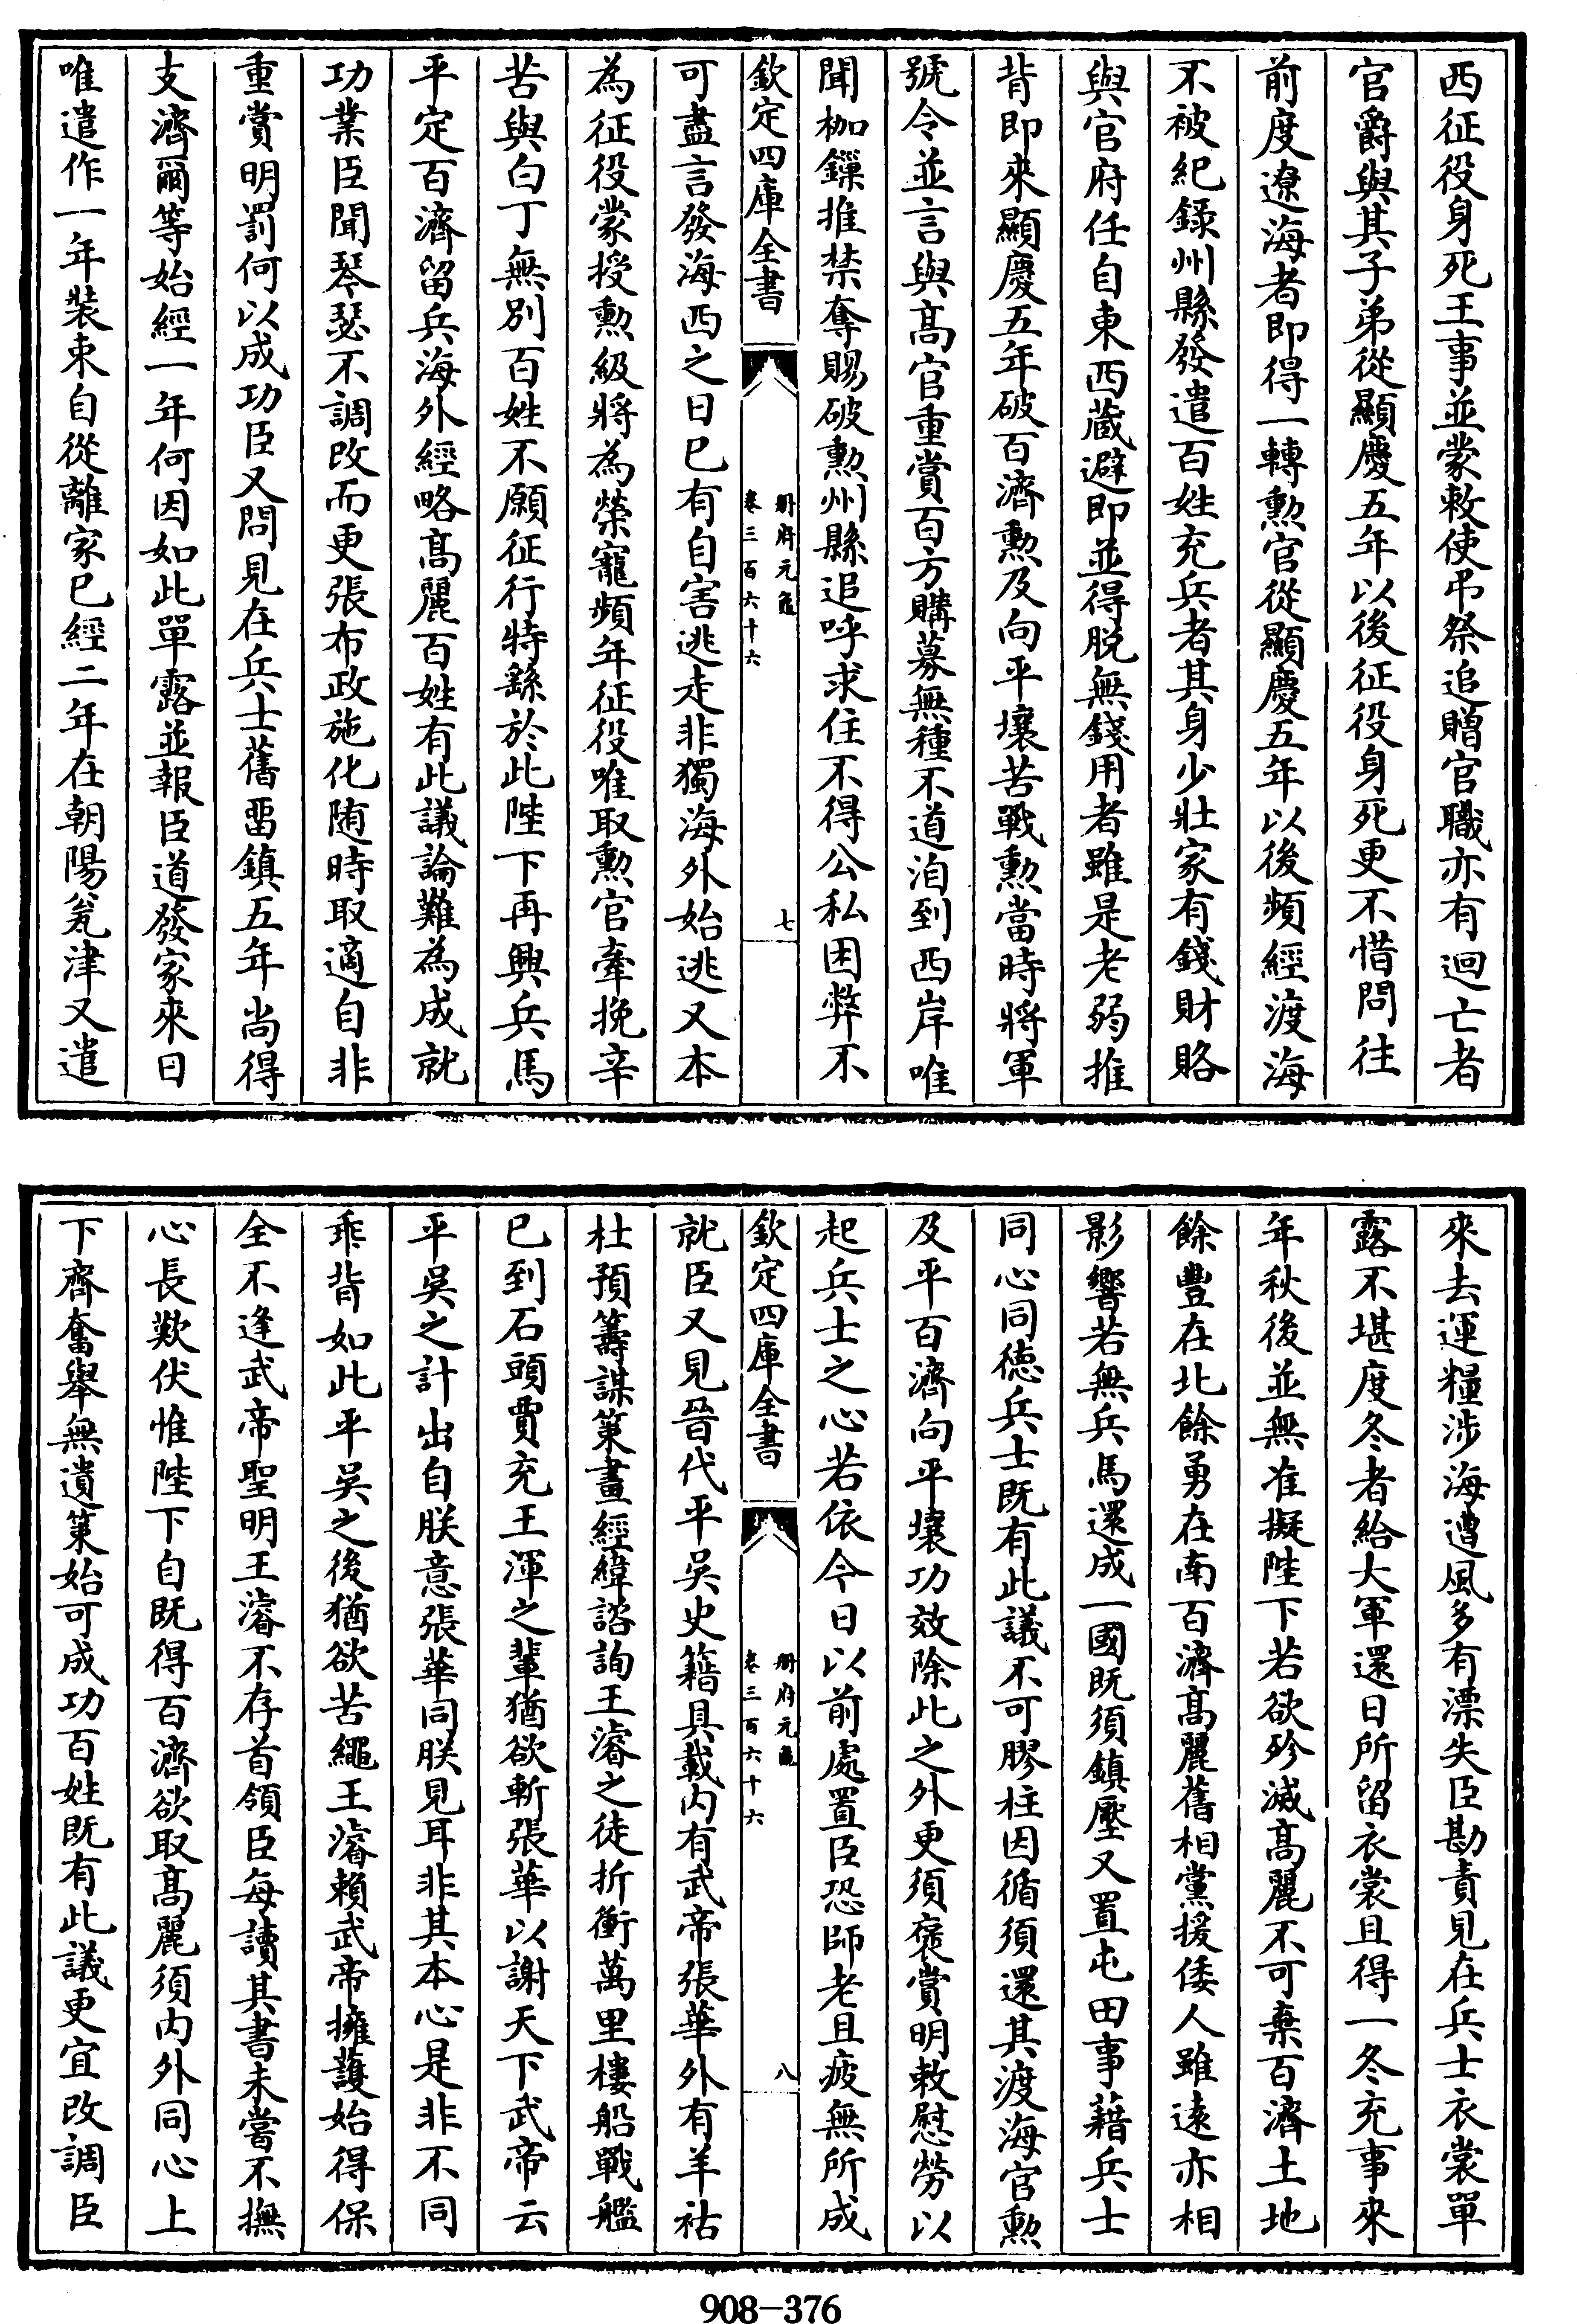 西征役身死王事並蒙敕使弔祭追贈官職亦有迴亡者
官爵與其子弟從顯慶五年以後征役身死更不惜問往
前度遼海者即得一轉勲官從顯慶五年以後頻經渡海
不被紀錄州縣發遣百姓充兵者其身少壯家有錢財賂
與官府任自東西藏避即並得脱無錢用者雖是老弱推
背即來顯慶五年破百濟勲及向平壤苦戰勲當時將軍
號令並言與髙官重賞百方購募無種不道洎到西岸唯
聞枷鏁推禁奪賜破勲州縣追呼求住不得公私困弊不
欽定四庫全書
冊府元龜
卷三百六十六
七
可盡言發海西之日已有自害逃走非獨海外始逃又本
為征役蒙授勲級將為榮寵頻年征役唯取勲官牽挽辛
苦與白丁無別百姓不願征行特繇於此陛下再興兵馬
平定百濟留兵海外經略髙麗百姓有此議論難為成就
功業臣聞琴瑟不調改而更張布政施化隨時取適自非
重賞明罰何以成功臣又問見在兵士舊留鎮五年尚得
支濟爾等始經一年何因如此單露並報臣道發家來日
唯遣作一年裝束自從離家已經二年在朝陽甕津又遣
來去運糧涉海遭風多有漂失臣勘責見在兵士衣裳單
露不堪度冬者給大軍還日所留衣裳且得一冬充事來
年秋後並無准擬陛下若欲殄滅髙麗不可棄百濟土地
餘豐在北餘勇在南百濟髙麗舊相黨援倭人雖遠亦相
影響若無兵馬還成一國既須鎮壓又置屯田事藉兵士
同心同德兵士既有此議不可膠柱因循須還其渡海官勲
及平百濟向平壤功效除此之外更須褒賞明敕慰勞以
起兵士之心若依今日以前處置臣恐師老且疲無所成
欽定四庫全書
冊府元龜
卷三百六十六
八
就臣又見晉代平吳史籍具載内有武帝張華外有羊祜
杜預籌謀策畫經緯諮詢王濬之徒折衝萬里樓船戰艦
已到石頭賈充王渾之輩猶欲斬張華以謝天下武帝云
平吳之計出自朕意張華同朕見耳非其本心是非不同
乖背如此平吳之後猶欲苦繩王濬賴武帝擁護始得保
全不逢武帝聖明王濬不存首領臣每讀其書未嘗不撫
心長歎伏惟陛下自既得百濟欲取髙麗須内外同心上
下齊奮舉無遺策始可成功百姓既有此議更宜改調臣
908-376